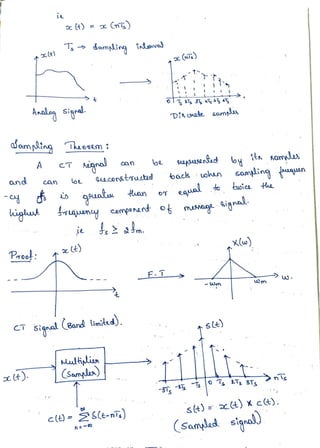 ie
x(t) = x(nTs)
Ts → Sampling Interval
x(t)
x(nTs)
t
0 Ts 2Ts 3Ts 4Ts 5Ts
Analog Signal
Discrete samples
Sampling Theorem :
A CT signal can be represented by its samples
and can be reconstructed back when sampling frequen
-cy fs is greater than or equal to twice the
highest frequency component of message signal.
ie fs ≥ 2fm.
Proof:
x(t)
X(w)
F.T
t
-wm
wm
w.
CT signal (Band limited).
s(t)
Multiplier
(Sampler)
x(t).
-3Ts -Ts 0 Ts 2Ts 3Ts nTs
c(t) = ∞ Σ n=-∞ δ(t-nTs)
s(t) = x(t) × c(t).
(Sampled signal)